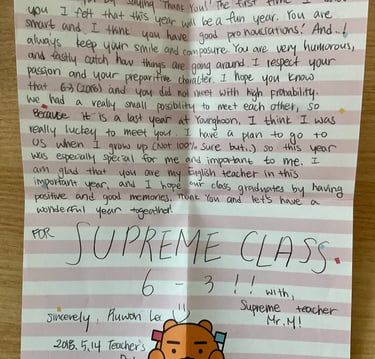 by saying Thank You! The first time I
you I felt that this year will be a fun year. You are
smart and I think you have good pronuciations! And..!
always keep your smile and composure. You are very humorous,
and fastly catch how things are going around. I respect your
passion and your preparitive character. I hope you know
that 6-3 (2018) and you did not meet with high probability.
We had a really small posibility to meet each other, so
Because it is a last year at Younghoon, I think I was
really luckey to meet you! I have a plan to go to
US when I grow up (Not 100% sure but..) so this year
was especially special for me and impatant to me. I
am glad that you are my English teacher in this
important year, and I hope our class graduates by having
positive and good memories. Thank You and let's have a
wonderful year together!
FOR
SUPREME CLASS
6 - 3 !! with,
Supreme teacher
Mr. M!
Sincerely, Lee
2018. 5. 14 Teacher's